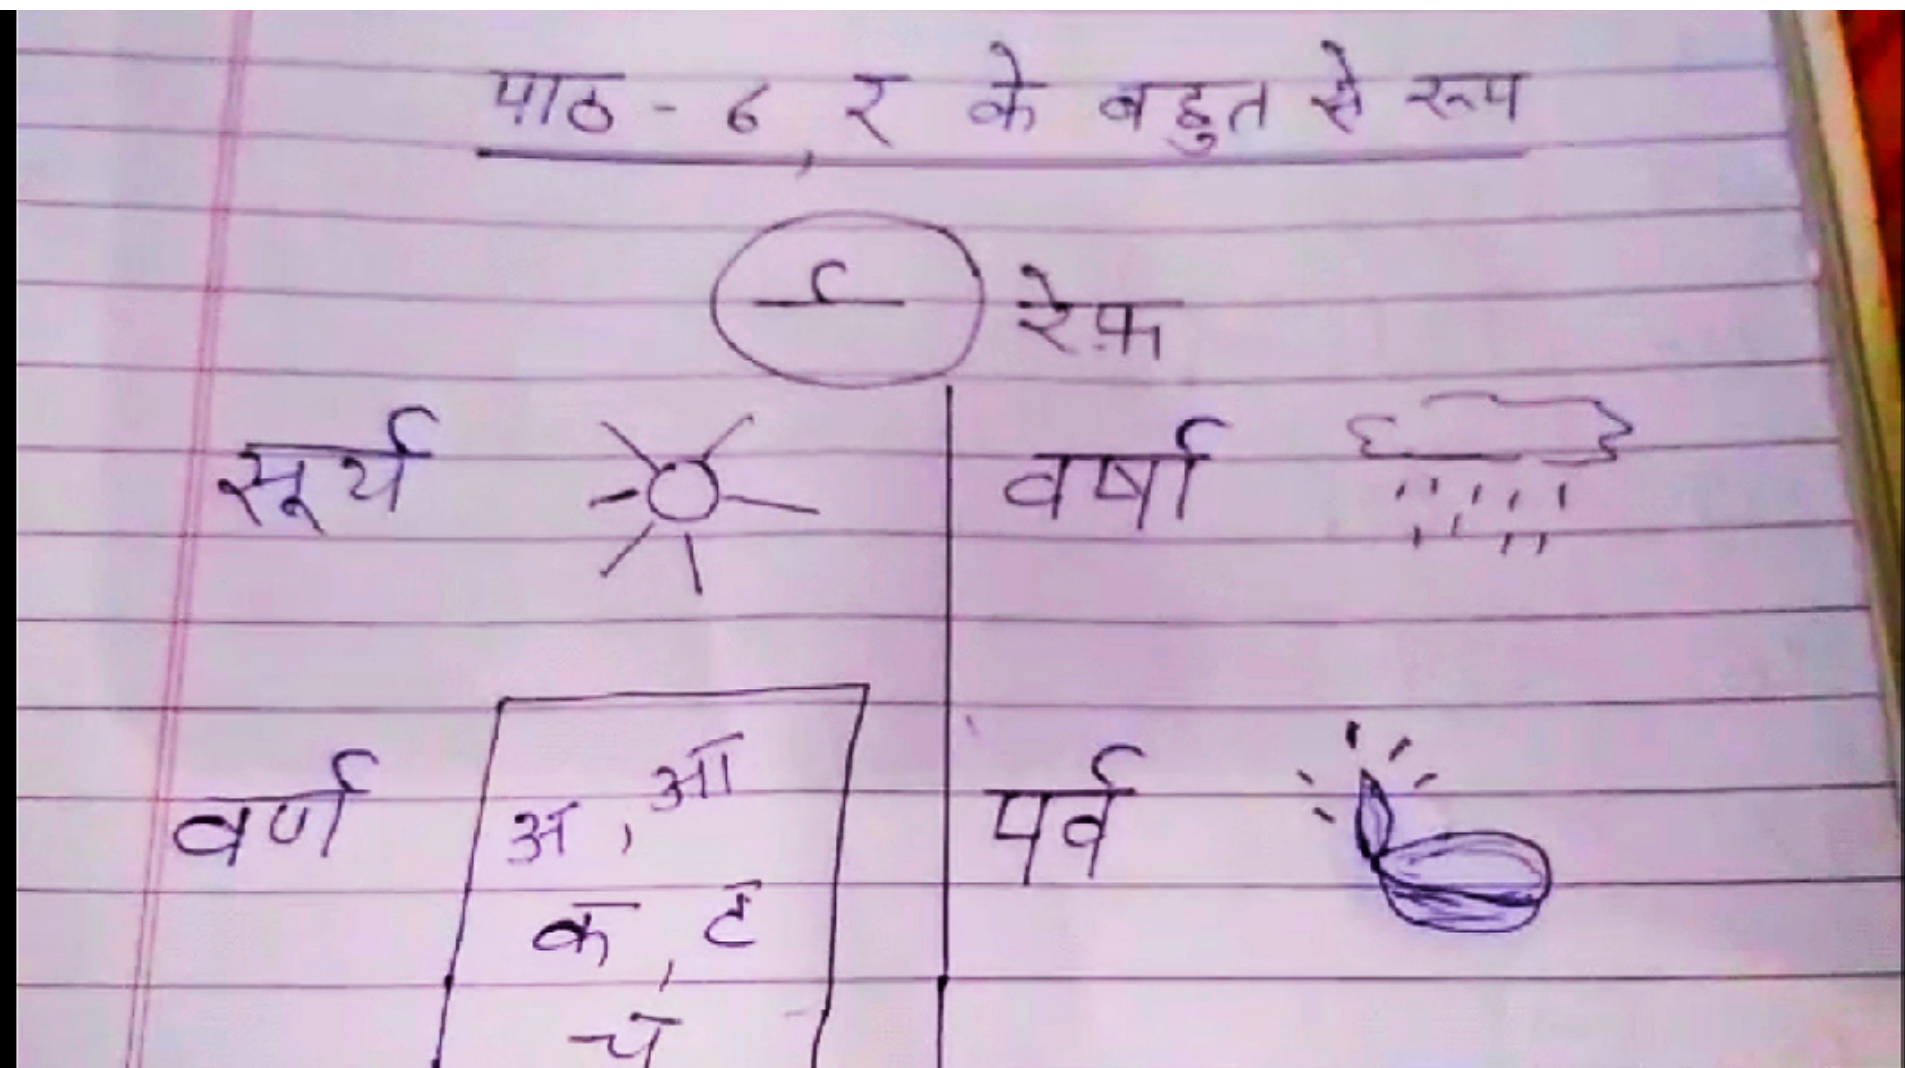 पाठ - ६, र के बहुत से रूप
र्  रेफ़
सूर्य
वर्षा
वर्ण
अ, आ
क, ट
च
पर्व